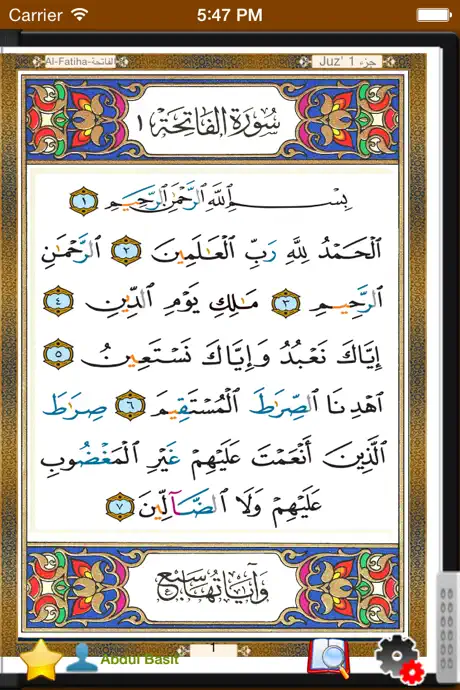 Carrier 5:47 PM
Al-Fatiha-الفاتحة Juz' 1 جزء
سُورَةُ الفَاتِحَةِ ١
بِسْمِ اللَّهِ الرَّحْمَٰنِ الرَّحِيمِ ١
الْحَمْدُ لِلَّهِ رَبِّ الْعَالَمِينَ ٢ الرَّحْمَٰنِ
الرَّحِيمِ ٣ مَالِكِ يَوْمِ الدِّينِ ٤
إِيَّاكَ نَعْبُدُ وَإِيَّاكَ نَسْتَعِينُ ٥
اهْدِنَا الصِّرَاطَ الْمُسْتَقِيمَ ٦ صِرَاطَ
الَّذِينَ أَنْعَمْتَ عَلَيْهِمْ غَيْرِ الْمَغْضُوبِ
عَلَيْهِمْ وَلَا الضَّآلِّينَ ٧
وَآيَاتُهَا سَبْعٌ
1
Abdul Basit